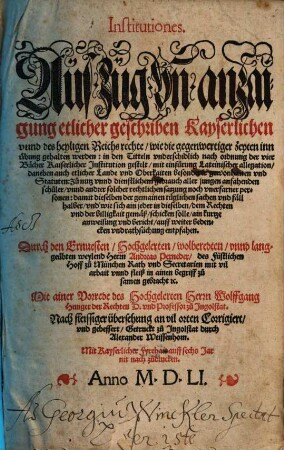 Institutiones.
Auszug vn̄ anzai
gung etlicher geschriben Kayserlichen
vnnd des heyligen Reichs rechte / wie die gegenwertiger zeyten inn
übung gehalten werden: in den Titteln vnderschidlich nach ordnung der vier
Bücher Kayserlicher Institution gestelt / mit einfürung Lateinischer allegation /
daneben auch etlicher Lande vnd Oberkaiten besonderer gewonheiten vnd
Statuten: Zů nutz vnnd dienstlichem gebrauch aller jungen angehenden
schüler / vnnd anderer solcher rechtlichen satzung noch vnerfarner per
sonen: damit dieselben der gemainen täglichen sachen vnd fäll
halber / vnd wie sich ain jeder in dieselben / dem Rechten
vnd der billigkeit gemäß / schicken solle / ain kurtze
anweisung vnd bericht / auff weiter beden
cken vnd rathsůchung empfahen.
Durch den Ernuesten / Hochgelerten / wolberedten / vnnd lang
geübten weylend Herrn Andreas Perneder / des Fürstlichen
Hoff zů München Rath vnd Secretarien mit vil
arbait vnnd fleiß in ainen begriff zů
samen gebracht ꝛc.
Mit ainer Vorrede des Hochgelerten Herrn Wolffgang
Hunger der Rechten D. vnd Professor zů Ingolstat.
Nach fleissiger übersehung an vil orten Corrigiert /
vnd gebessert / Getruckt zů Ingolstat durch
Alexander Weissenhorn.
Mit Kayserlicher Freyhait auff sechs Jar
nit nach zůdrucken.
Anno M. D. LI.
Georgiū Winckler